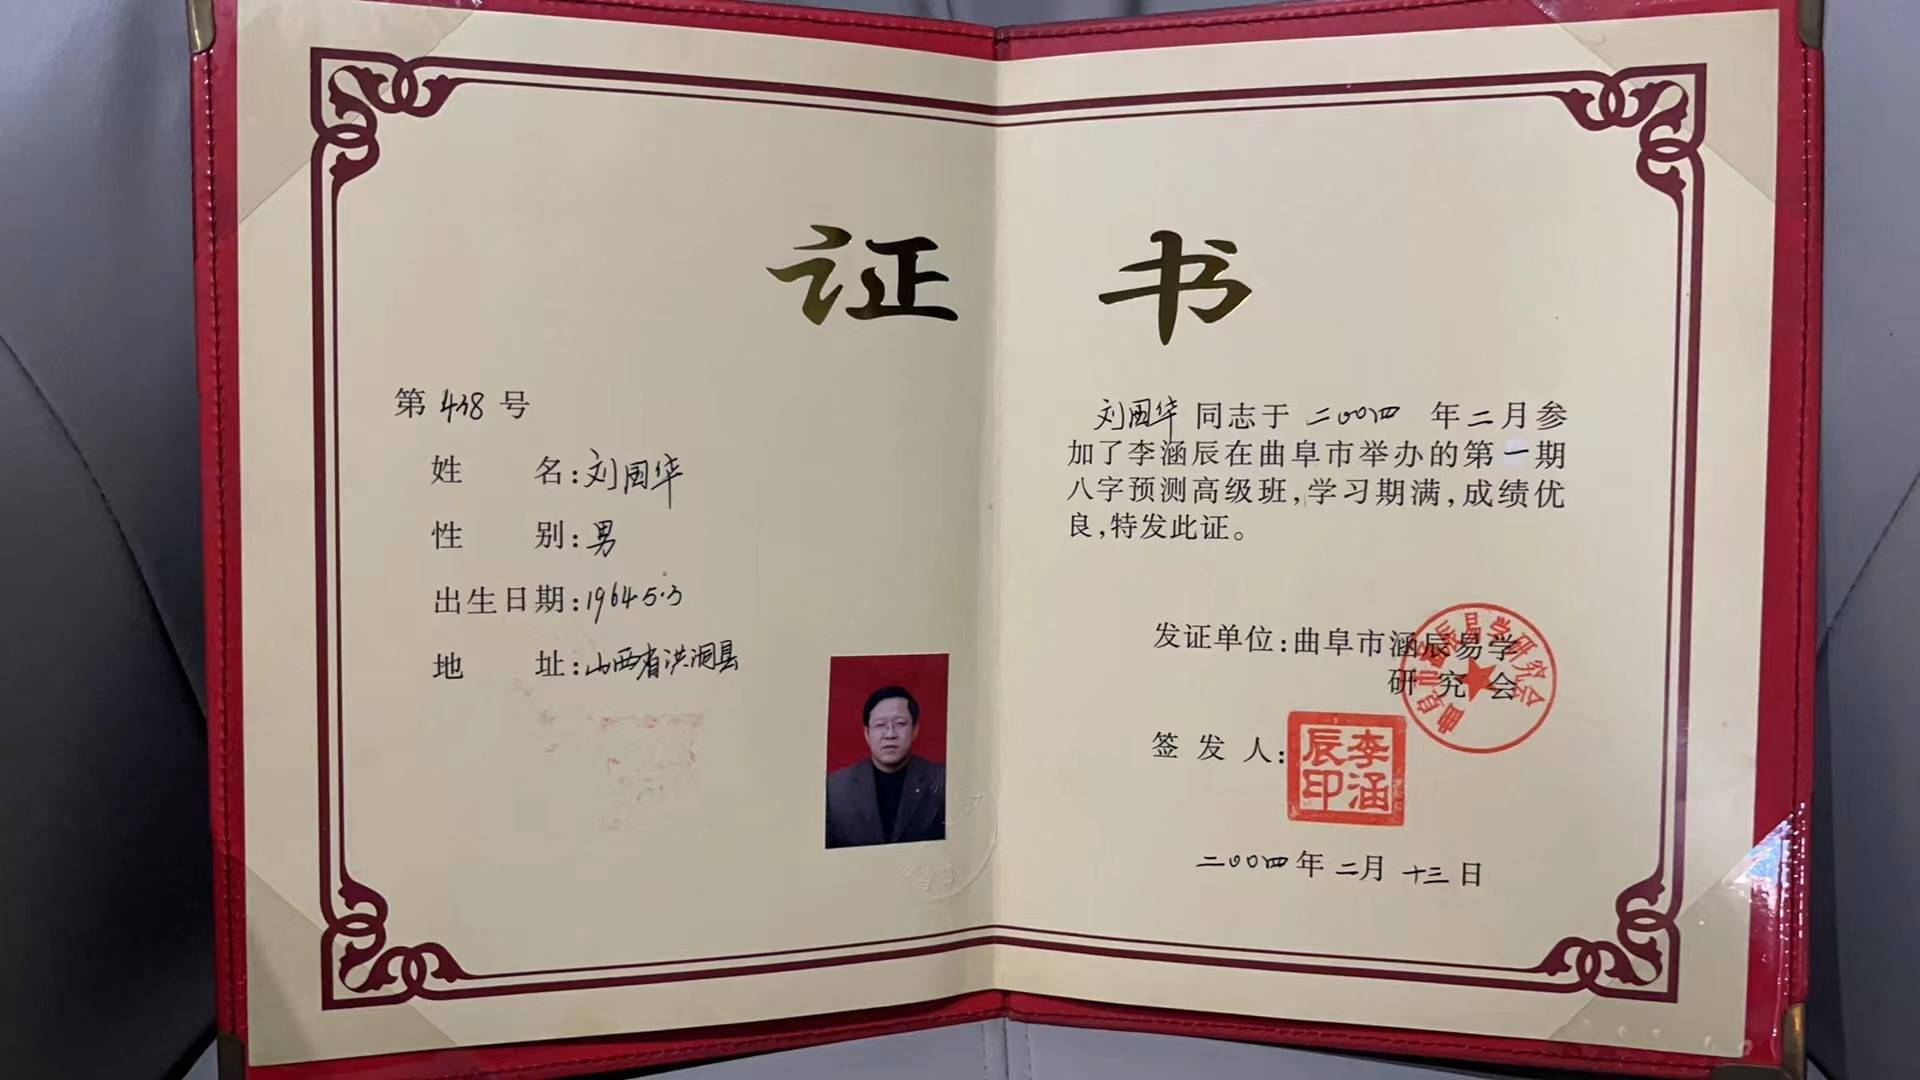 证书
第 438 号
姓 名:刘国华
性 别:男
出生日期:1964.5.3
地 址:山西省洪洞县
刘国华 同志于 二〇〇四 年 二 月参
加了李涵辰在曲阜市举办的第一期
八字预测高级班,学习期满,成绩优
良,特发此证。
发证单位:曲阜市涵辰易学
研究会
曲阜市涵辰易学研究会
签发人:
李涵辰印
二〇〇四 年 二 月 十三 日